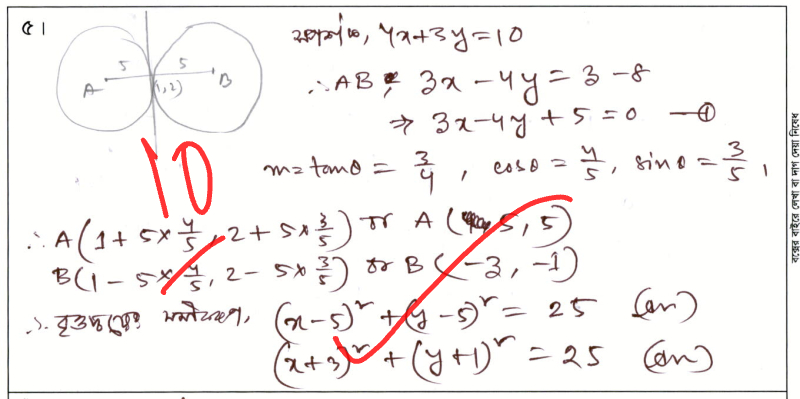 ৫।
স্পর্শক, 4x+3y=10
5 5
A (1,2) B
∴ AB, 3x-4y=3-8
⇒ 3x-4y+5=0 —①
10
m=tanθ = 3/4, cosθ = 4/5, sinθ = 3/5,
∴ A(1+5×4/5, 2+5×3/5) or A(5,5)
B(1-5×4/5, 2-5×3/5) or B(-3,-1)
∴ বৃত্তদ্বয়ের সমীকরণ, (x-5)²+(y-5)² = 25 (an)
(x+3)²+(y+1)² = 25 (an)
বক্সের বাইরে লেখা বা দাগ দেয়া নিষেধ